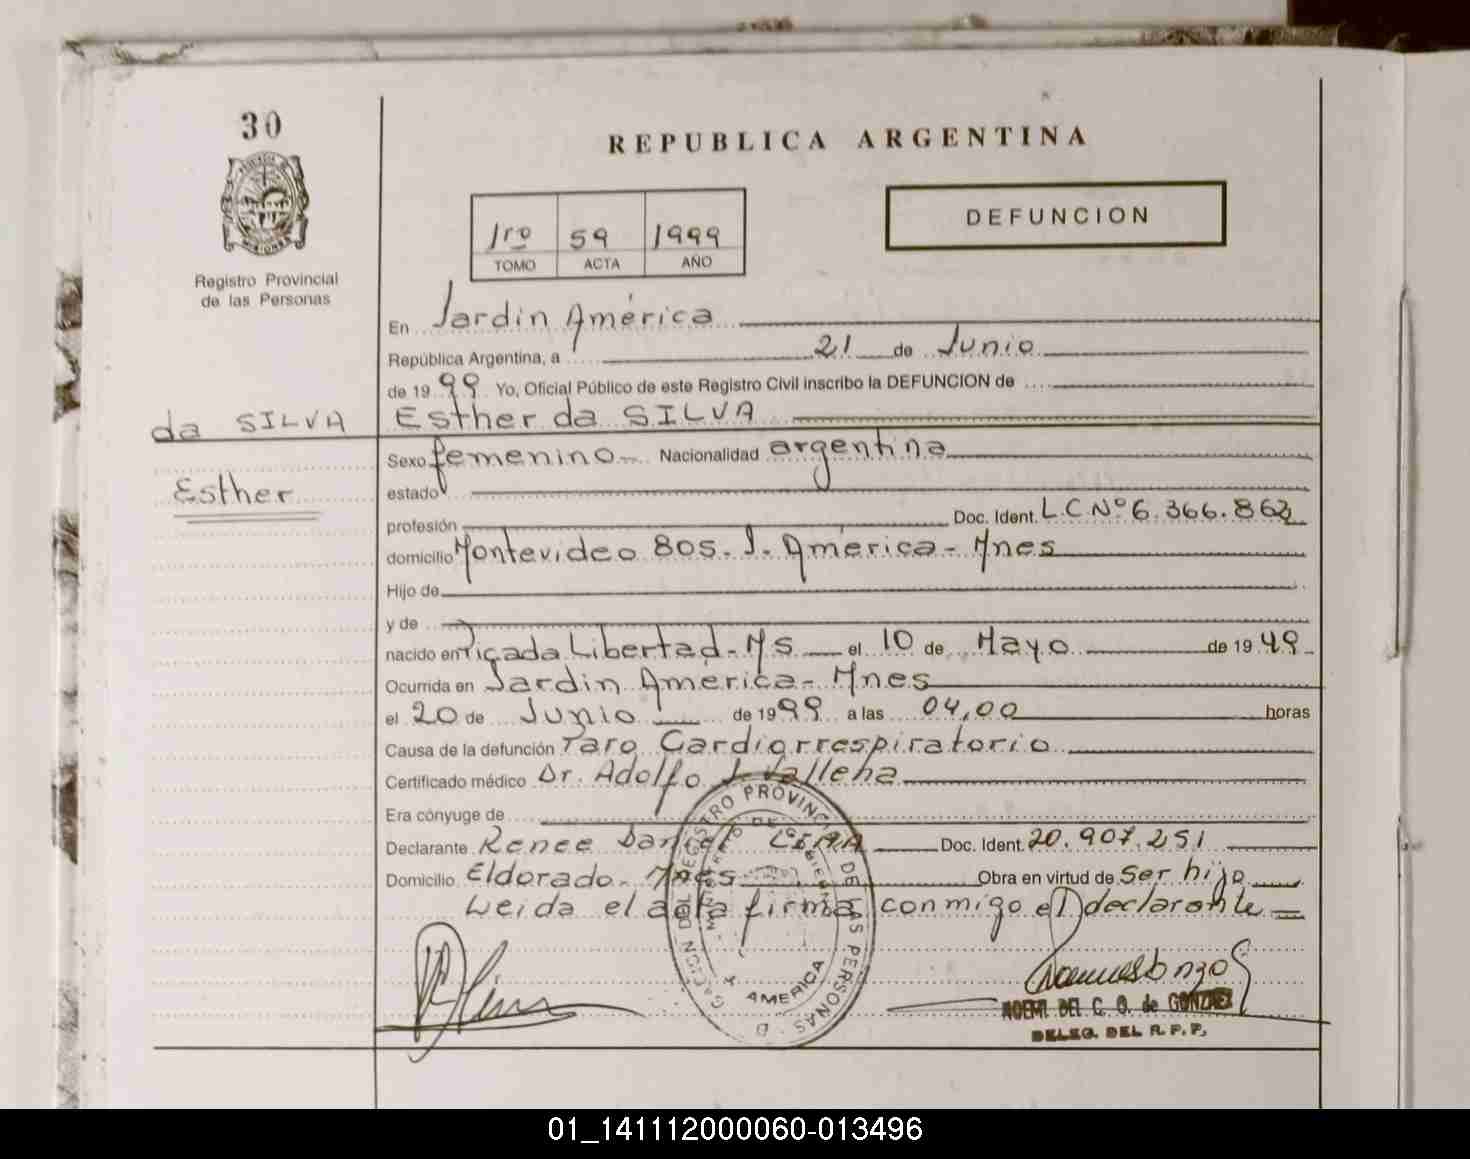 30
REPUBLICA ARGENTINA
DEFUNCION
1ro 59 1999
TOMO ACTA AÑO
Registro Provincial
de las Personas
En Jardin América
República Argentina, a 21 de Junio
de 1999 Yo, Oficial Público de este Registro Civil inscribo la DEFUNCION de
da SILVA
Esther da SILVA
Sexo femenino Nacionalidad argentina
Esther
estado
profesión Doc. Ident. L.C. Nº 6.366.862
domicilio Montevideo 805. J. América - Mnes
Hijo de
y de
nacido en Picada Libertad - Ms el 10 de Mayo de 1949
Ocurrida en Jardin America - Mnes
el 20 de Junio de 1999 a las 04,00 horas
Causa de la defunción Paro Cardiorrespiratorio
Certificado médico Dr. Adolfo J.
Era cónyuge de
Declarante Renee Doc. Ident. 20.907.251
Domicilio Eldorado - Mnes Obra en virtud de Ser hijo
Leida el acta firma conmigo el declarante
REGISTRO PROVINCIAL DE LAS PERSONAS
AMERICA
NOEMI DEL C. O. de GONZALEZ
DELEG. DEL R. P. P.
01_141112000060-013496